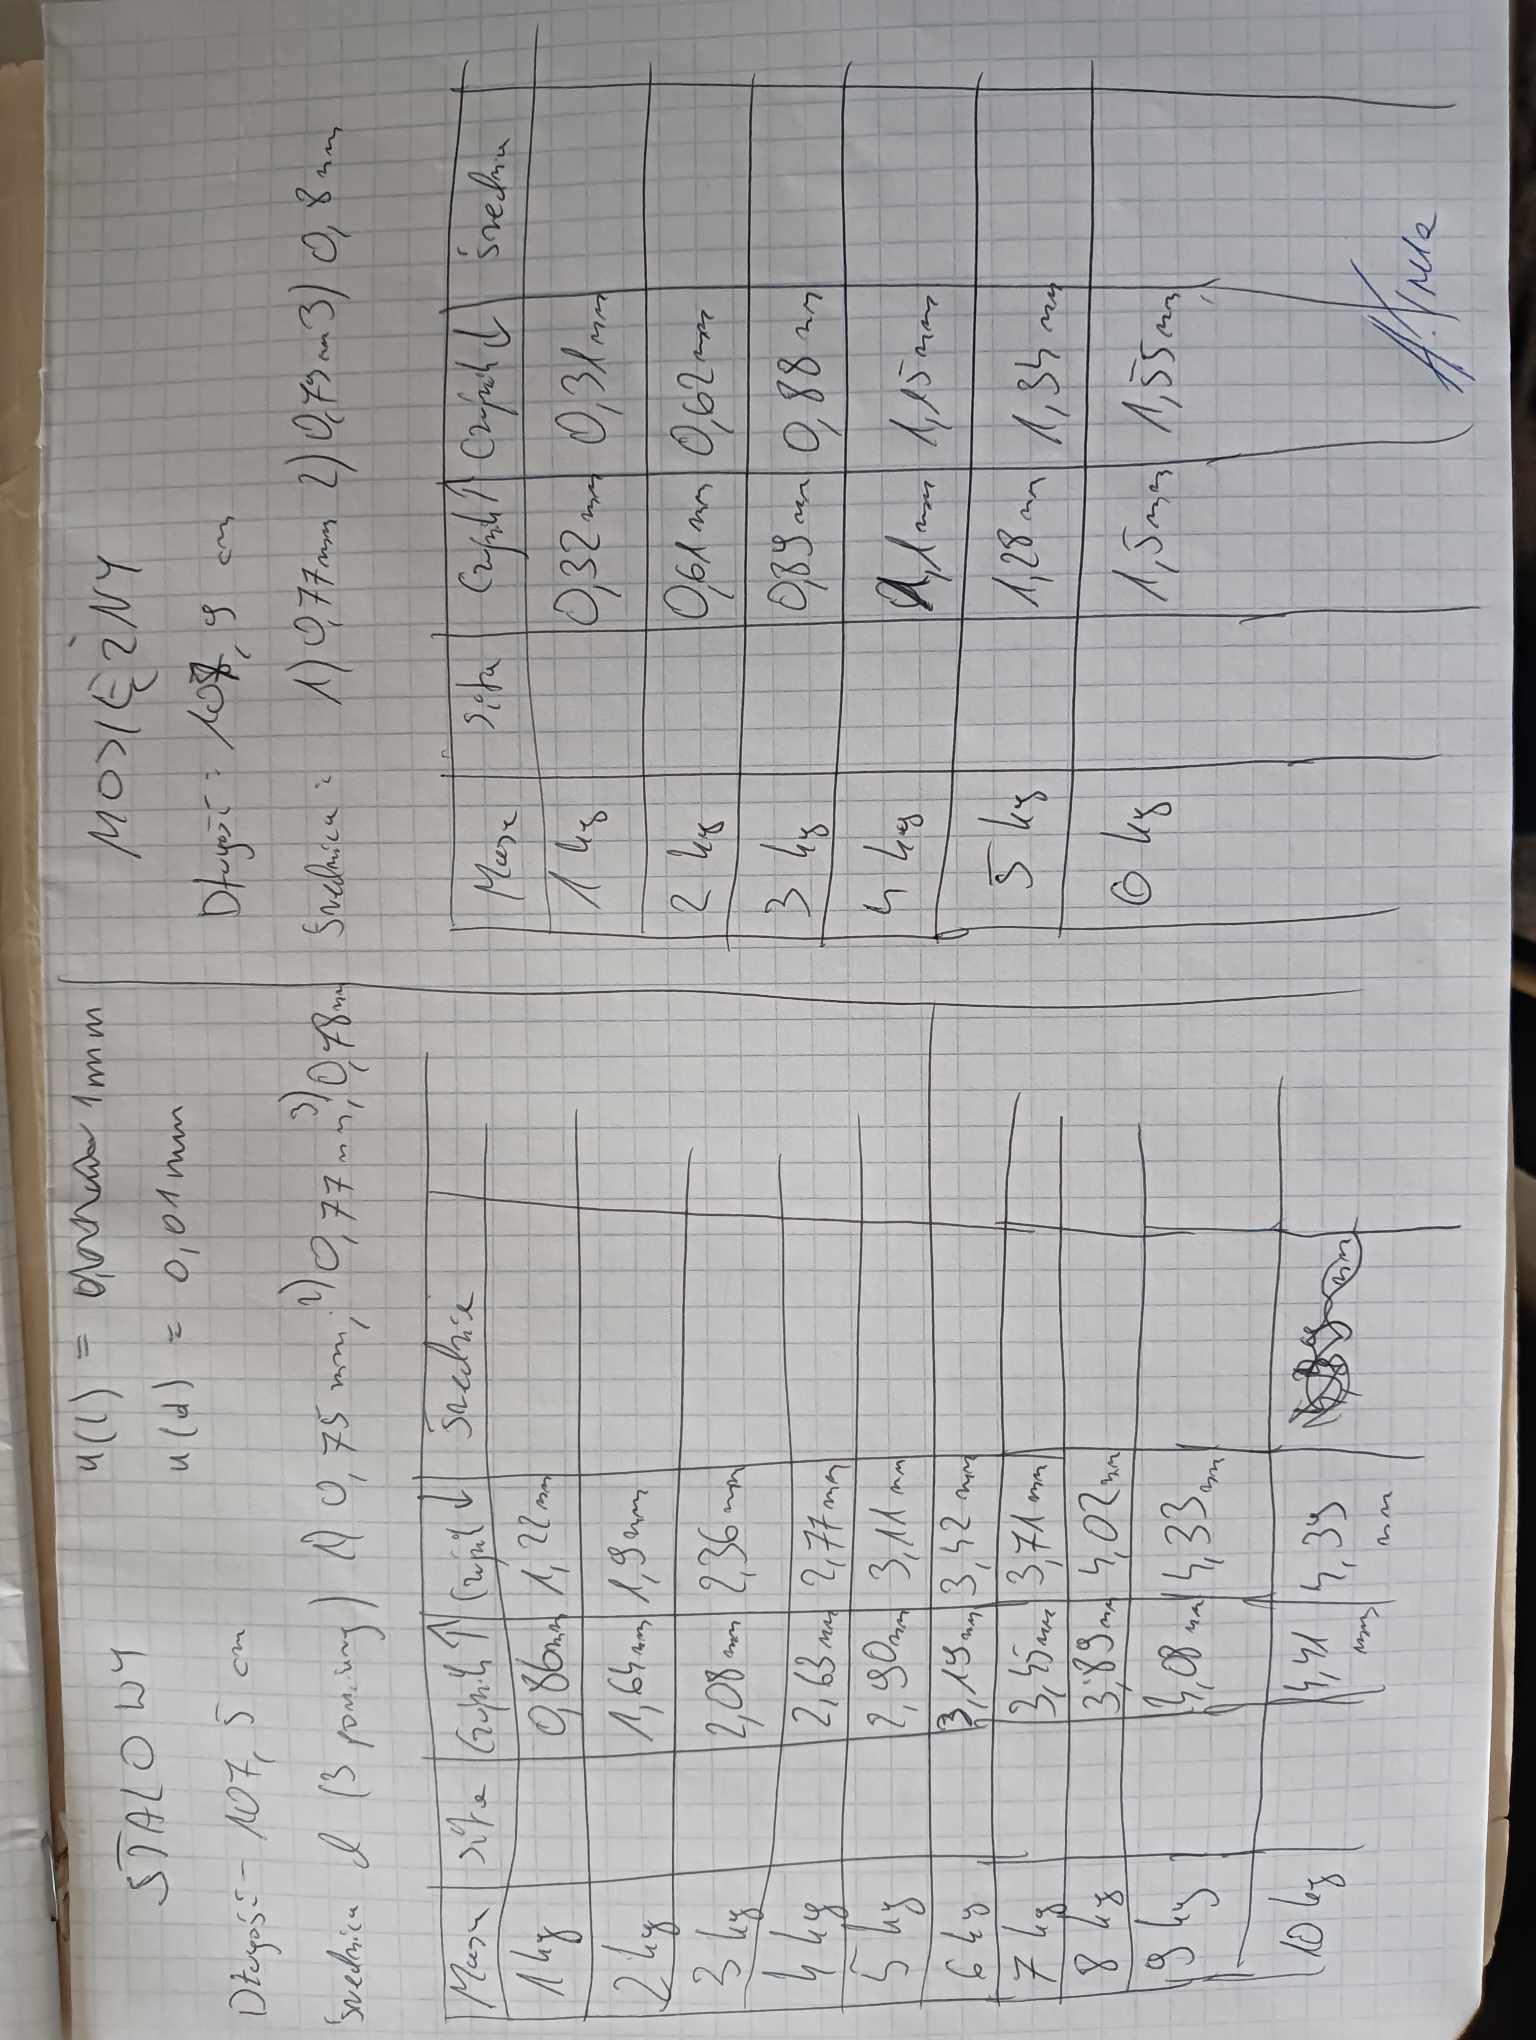 u(l) = 1mm
u(d) = 0,01mm
STALOWY
Długość – 107,5 cm
Średnica d (3 pomiary) 1) 0,75 mm; 2) 0,77 mm, 3) 0,78mm
Masa siła Czujnik ↑ Czujnik ↓ Średnia
1 kg 0,86mm 1,22mm
2 kg 1,64mm 1,9mm
3 kg 2,08mm 2,36mm
4 kg 2,63mm 2,77mm
5 kg 2,90mm 3,11mm
6 kg 3,19mm 3,42mm
7 kg 3,45mm 3,71mm
8 kg 3,89mm 4,02mm
9 kg 4,08mm 4,33mm
10 kg 4,41 mm 4,39 mm
MOSIĘŻNY
Długość: ,9 cm
Średnica: 1) 0,77mm 2) 0,79mm 3) 0,8mm
Masa siła Czujnik ↑ Czujnik ↓ Średnia
1 kg 0,32mm 0,31mm
2 kg 0,61mm 0,62mm
3 kg 0,89mm 0,88mm
4 kg 1,1mm 1,15mm
5 kg 1,28mm 1,34mm
6 kg 1,5mm 1,55mm